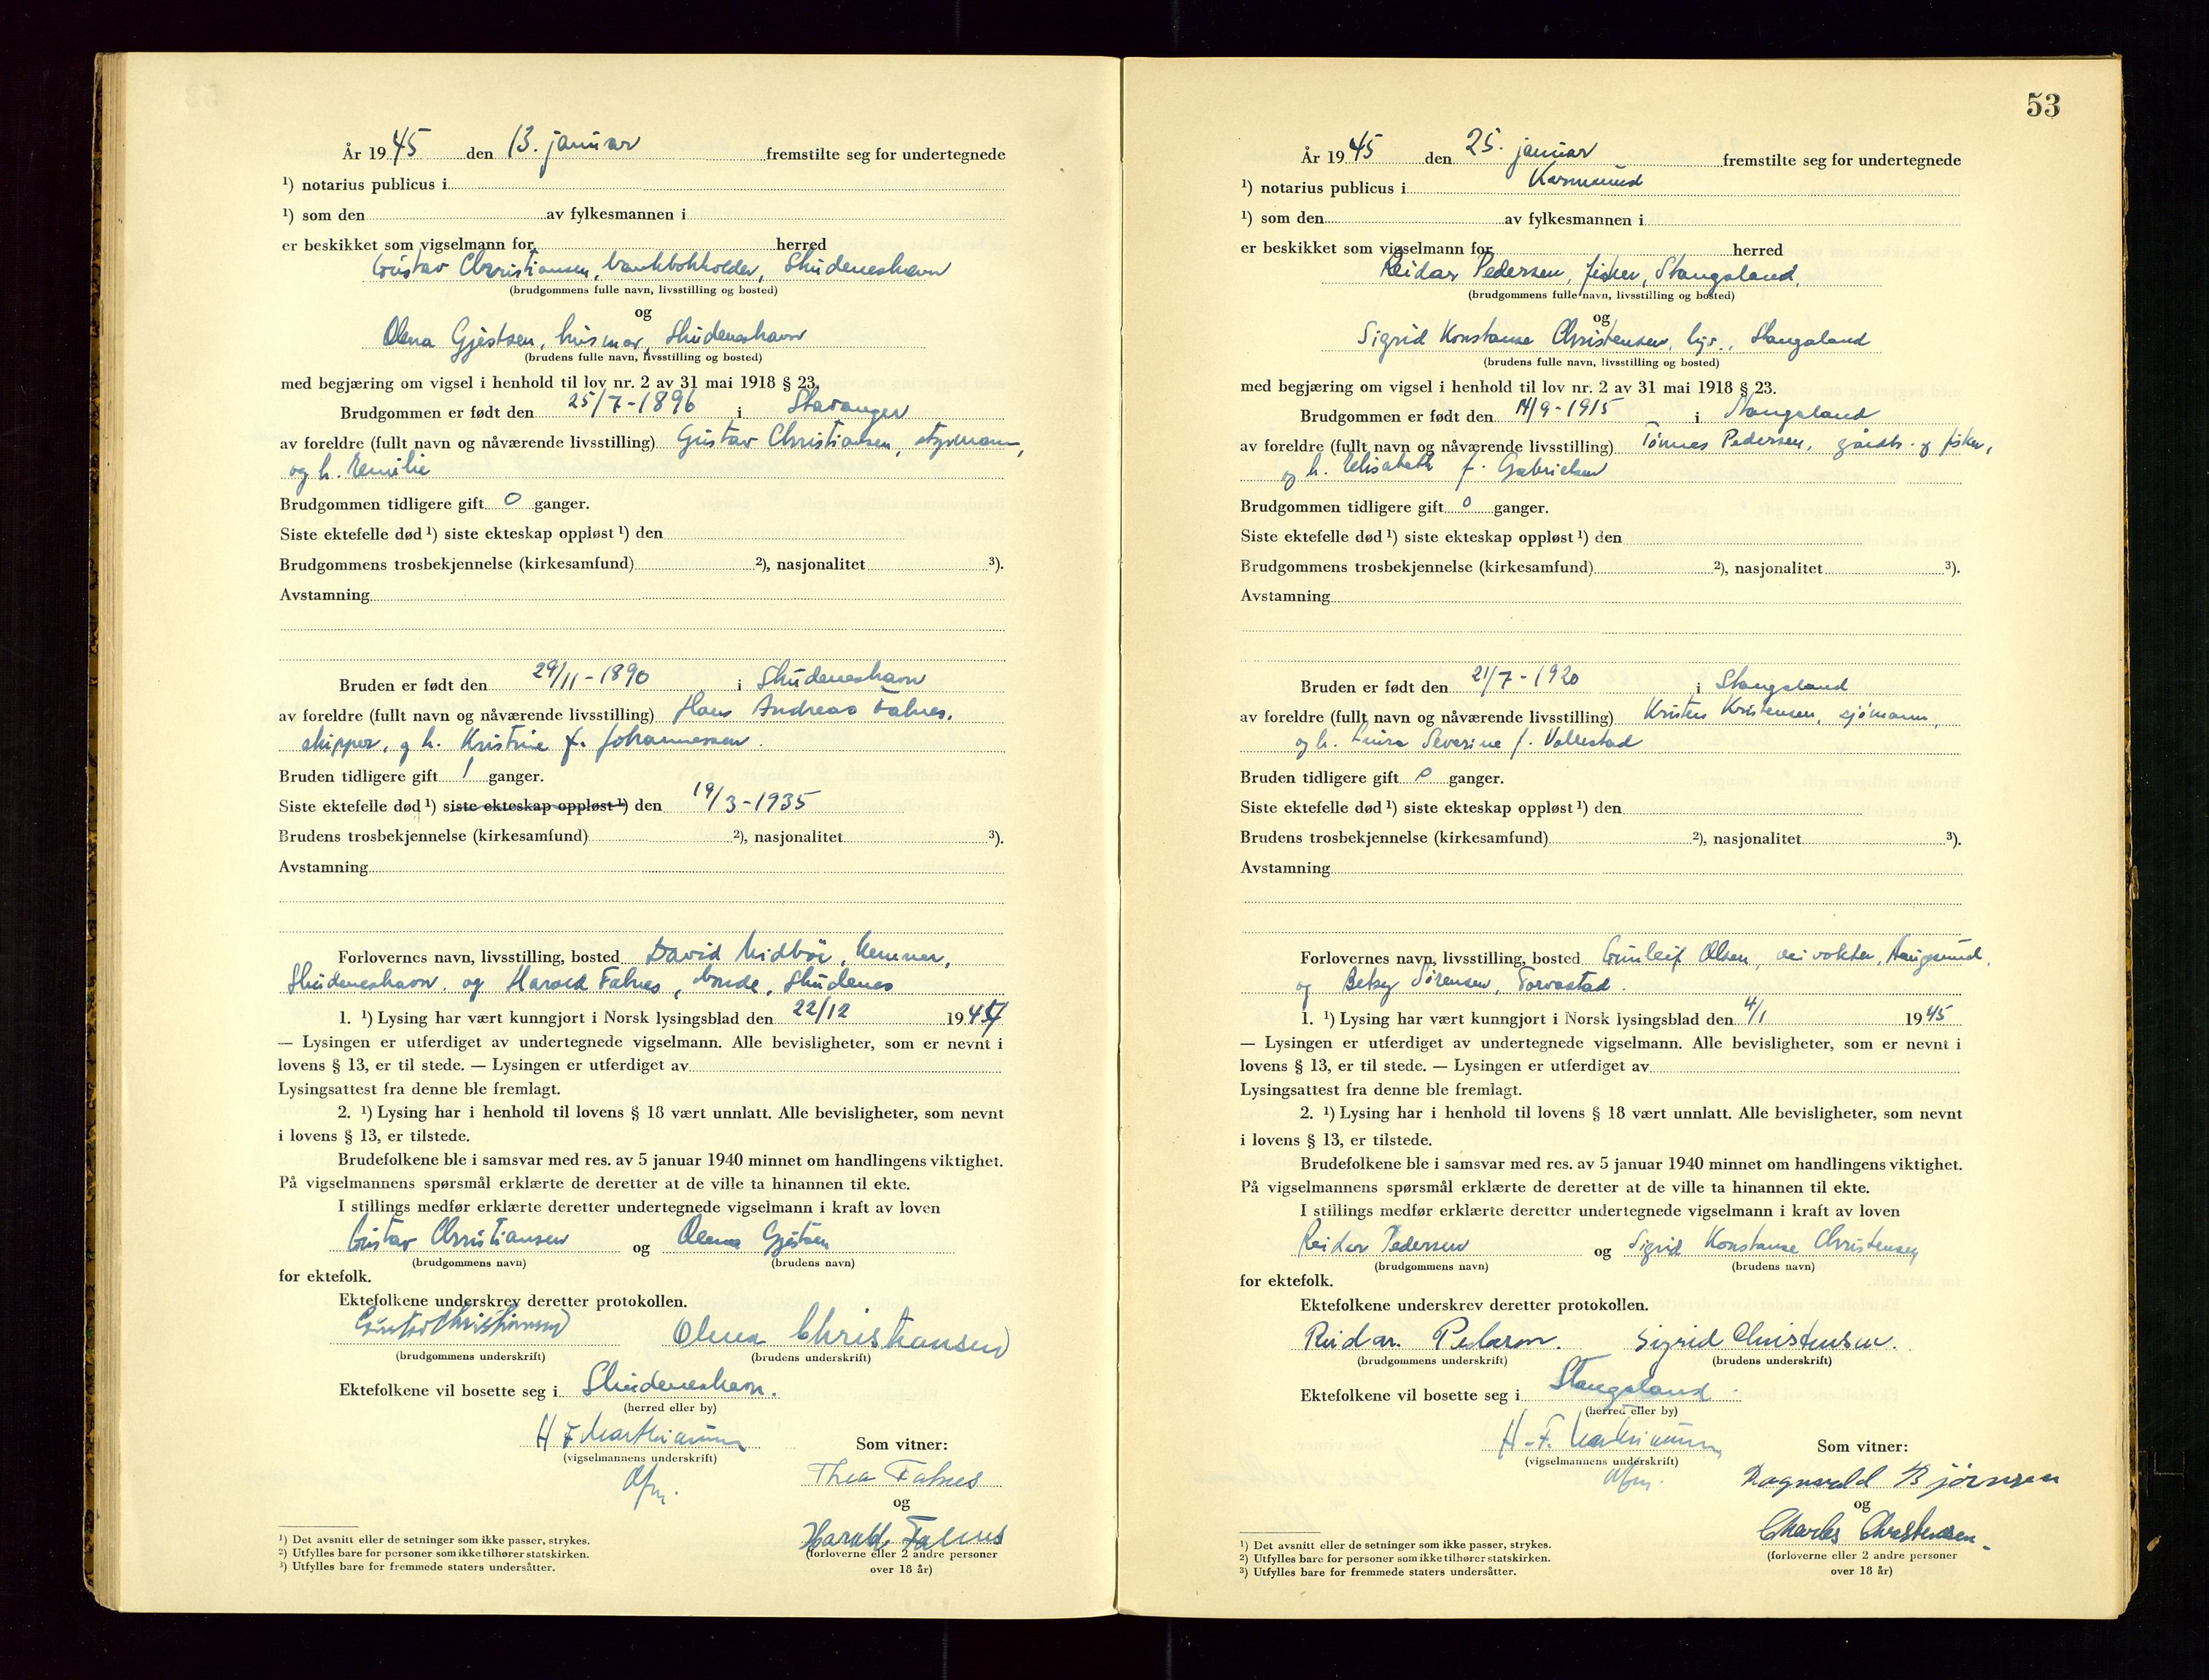 År 1945 den 13. januar fremstilte seg for undertegnede
¹) notarius publicus i
¹) som den av fylkesmannen i
er beskikket som vigselmann for herred
Gustav Christiansen, bankbokholder, Skudeneshavn
(brudgommens fulle navn, livsstilling og bosted)
og
Olena Gjestsen, husmor, Skudeneshavn
(brudens fulle navn, livsstilling og bosted)
med begjæring om vigsel i henhold til lov nr. 2 av 31 mai 1918 § 23.
Brudgommen er født den 25/7-1896 i Stavanger
av foreldre (fullt navn og nåværende livsstilling) Gustav Christiansen, styrmann,
og h. Emilie
Brudgommen tidligere gift 0 ganger.
Siste ektefelle død ¹) siste ekteskap oppløst ¹) den
Brudgommens trosbekjennelse (kirkesamfund) ²), nasjonalitet ³).
Avstamning
Bruden er født den 29/11-1890 i Skudeneshavn
av foreldre (fullt navn og nåværende livsstilling) Hans Andreas Falnes,
skipper, og h. Kristine f. Johannessen.
Bruden tidligere gift 1 ganger.
Siste ektefelle død ¹) siste ekteskap oppløst ¹) den 19/3-1935
Brudens trosbekjennelse (kirkesamfund) ²), nasjonalitet ³).
Avstamning
Forlovernes navn, livsstilling, bosted David Midbøe, kemner,
Skudeneshavn, og Harald Falnes, bonde, Skudenes
1. ¹) Lysing har vært kunngjort i Norsk lysingsblad den 22/12 1944
— Lysingen er utferdiget av undertegnede vigselmann. Alle bevisligheter, som er nevnt i
lovens § 13, er til stede. — Lysingen er utferdiget av
Lysingsattest fra denne ble fremlagt.
2. ¹) Lysing har i henhold til lovens § 18 vært unnlatt. Alle bevisligheter, som nevnt
i lovens § 13, er tilstede.
Brudefolkene ble i samsvar med res. av 5 januar 1940 minnet om handlingens viktighet.
På vigselmannens spørsmål erklærte de deretter at de ville ta hinannen til ekte.
I stillings medfør erklærte deretter undertegnede vigselmann i kraft av loven
Gustav Christiansen og Olena Gjestsen
(brudgommens navn) (brudens navn)
for ektefolk.
Ektefolkene underskrev deretter protokollen.
Gustav Christiansen Olena Christiansen
(brudgommens underskrift) (brudens underskrift)
Ektefolkene vil bosette seg i Skudeneshavn.
(herred eller by)
H F Marthinussen
(vigselmannens underskrift) Som vitner:
Ofm.
Thea Falnes
og
Harald Falnes
(forloverne eller 2 andre personer
over 18 år)
¹) Det avsnitt eller de setninger som ikke passer, strykes.
²) Utfylles bare for personer som ikke tilhører statskirken.
³) Utfylles bare for fremmede staters undersåtter.
53
År 1945 den 25. januar fremstilte seg for undertegnede
¹) notarius publicus i Karmsund
¹) som den av fylkesmannen i
er beskikket som vigselmann for herred
Reidar Pedersen, fisker, Stangaland,
(brudgommens fulle navn, livsstilling og bosted)
og
Sigrid Konstanse Christensen, hjv., Stangaland
(brudens fulle navn, livsstilling og bosted)
med begjæring om vigsel i henhold til lov nr. 2 av 31 mai 1918 § 23.
Brudgommen er født den 14/9-1915 i Stangaland
av foreldre (fullt navn og nåværende livsstilling) Tønnes Pedersen, gårdbr. og fisker,
og h. Elisabeth f. Gabrielsen
Brudgommen tidligere gift 0 ganger.
Siste ektefelle død ¹) siste ekteskap oppløst ¹) den
Brudgommens trosbekjennelse (kirkesamfund) ²), nasjonalitet ³).
Avstamning
Bruden er født den 21/7-1920 i Stangaland
av foreldre (fullt navn og nåværende livsstilling) Kristen Kristensen, sjømann,
og h. Luira Severine f. Vallestad
Bruden tidligere gift 0 ganger.
Siste ektefelle død ¹) siste ekteskap oppløst ¹) den
Brudens trosbekjennelse (kirkesamfund) ²), nasjonalitet ³).
Avstamning
Forlovernes navn, livsstilling, bosted Gunleif Olsen, veivokter, Haugesund,
og Betsy Sørensen, Torvastad.
1. ¹) Lysing har vært kunngjort i Norsk lysingsblad den 4/1 1945
— Lysingen er utferdiget av undertegnede vigselmann. Alle bevisligheter, som er nevnt i
lovens § 13, er til stede. — Lysingen er utferdiget av
Lysingsattest fra denne ble fremlagt.
2. ¹) Lysing har i henhold til lovens § 18 vært unnlatt. Alle bevisligheter, som nevnt
i lovens § 13, er tilstede.
Brudefolkene ble i samsvar med res. av 5 januar 1940 minnet om handlingens viktighet.
På vigselmannens spørsmål erklærte de deretter at de ville ta hinannen til ekte.
I stillings medfør erklærte deretter undertegnede vigselmann i kraft av loven
Reidar Pedersen og Sigrid Konstanse Christensen
(brudgommens navn) (brudens navn)
for ektefolk.
Ektefolkene underskrev deretter protokollen.
Reidar. Pedersen. Sigrid Christensen.
(brudgommens underskrift) (brudens underskrift)
Ektefolkene vil bosette seg i Stangaland.
(herred eller by)
H. F. Marthinussen
(vigselmannens underskrift) Som vitner:
Ofm.
Ragnvald Bjørnsen
og
Charles Christensen.
(forloverne eller 2 andre personer
over 18 år)
¹) Det avsnitt eller de setninger som ikke passer, strykes.
²) Utfylles bare for personer som ikke tilhører statskirken.
³) Utfylles bare for fremmede staters undersåtter.